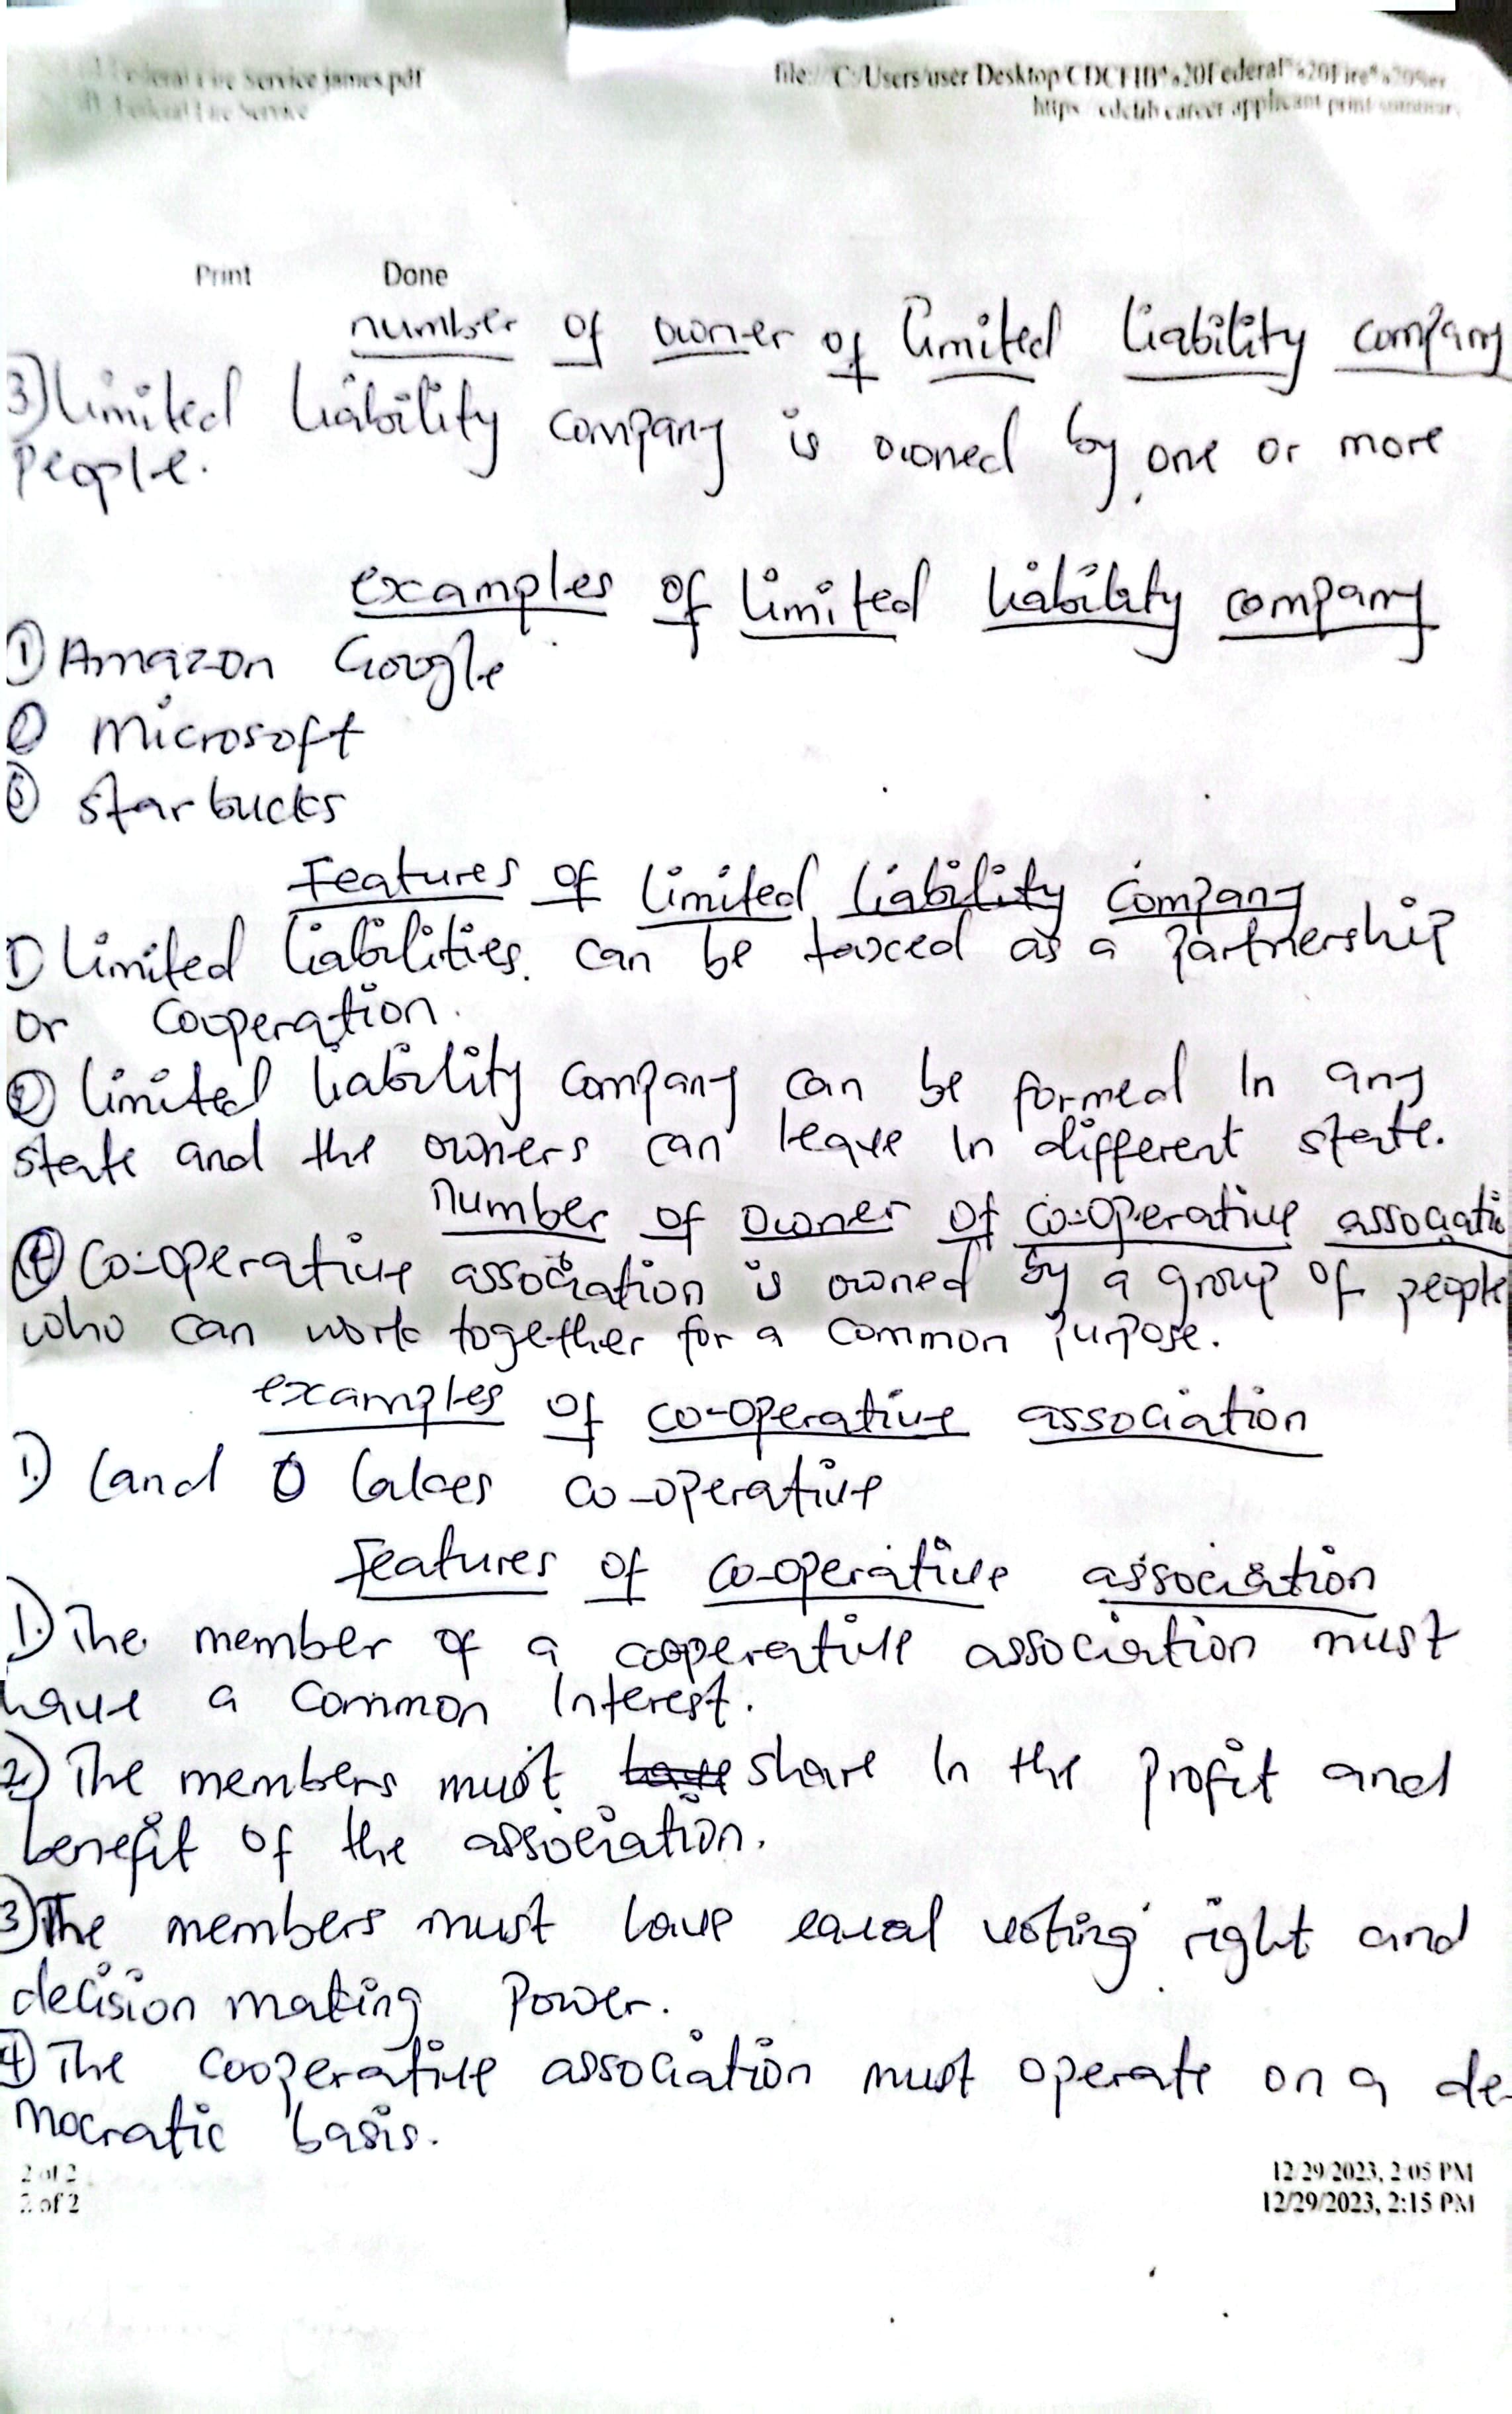 Federal Fire Service james.pdf
file: C:/Users/user/Desktop/CDCFIB%20Federal%20Fire%20Ser
Federal Fire Service
https
career applicant print
Print Done
number of owner of limited liability company
3) limited liability company is owned by one or more
people.
examples of limited liability company
① Amazon Google
② Microsoft
③ starbucks
Features of limited liability company
① limited liabilities. can be taxced as a Partnership
or Cooperation.
② limited liability company can be formed In any
state and the owners can leave In different state.
number of owner of co-operative associatio
④ Co-operative association is owned by a group of people
who can work together for a common purpose.
examples of co-operative association
1.) land O lakes co-operative
Features of co-operative association
1.) The member of a cooperative association must
have a common Interest.
2.) The members must have share In the profit and
benefit of the association.
3) The members must have equal voting right and
decision making Power.
4) The cooperative association must operate on a de-
mocratic basis.
2 of 2
12/29/2023, 2:05 PM
2 of 2
12/29/2023, 2:15 PM